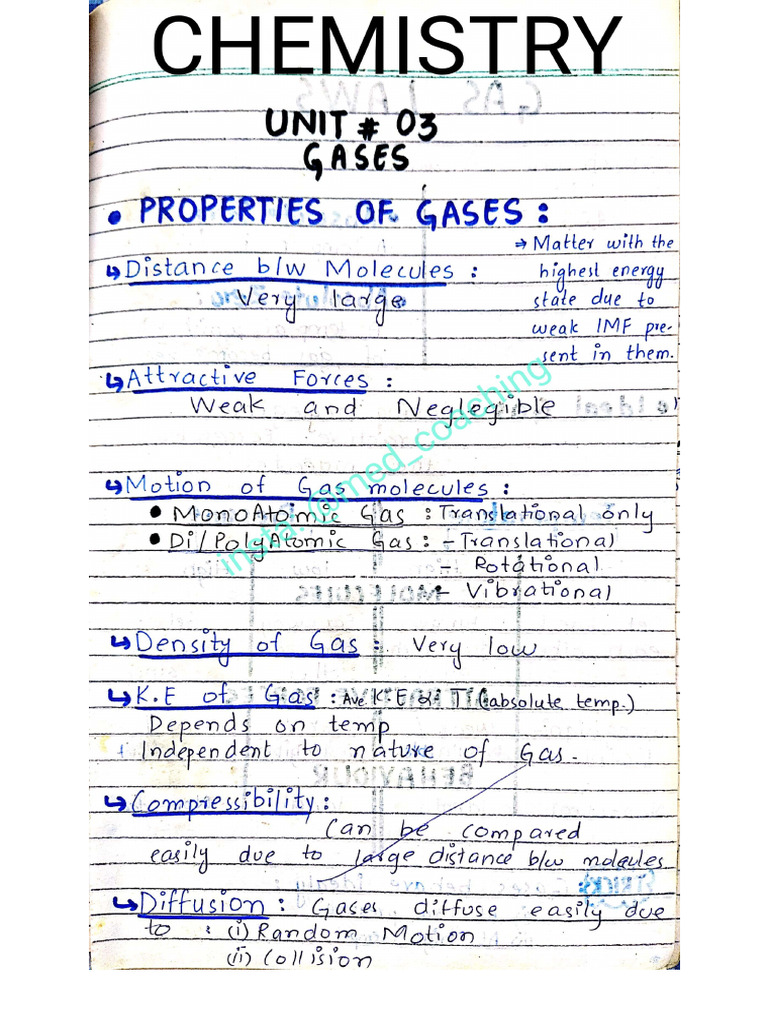 CHEMISTRY
UNIT # 03
GASES
• PROPERTIES OF GASES :
→ Matter with the
highest energy
state due to
weak IMF pre-
sent in them.
↳ Distance b/w Molecules :
Very large
↳ Attractive Forces :
Weak and Neglegible
↳ Motion of Gas molecules :
• MonoAtomic Gas : Translational only
• Di/PolyAtomic Gas : - Translational
- Rotational
- Vibrational
↳ Density of Gas : Very low
↳ K.E of Gas : Ave K.E α T (absolute temp.)
Depends on temp
Independent to nature of Gas.
↳ Compressibility :
Can be compared
easily due to large distance b/w molecules
↳ Diffusion : Gases diffuse easily due
to : (i) Random Motion
(ii) Collision
insta: @med_coaching